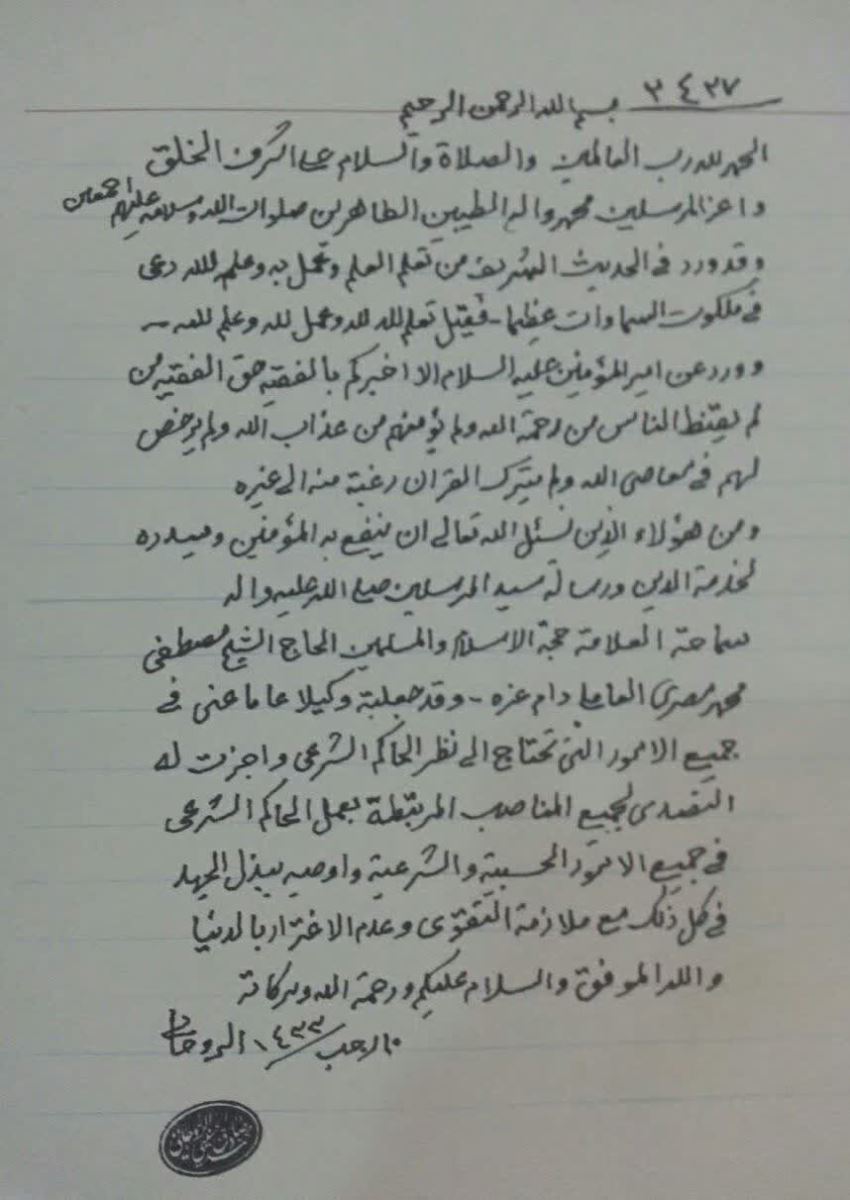 ٣٤٣٧ بسم الله الرحمن الرحيم
الحمد لله رب العالمين والصلاة والسلام على اشرف الخلق
واعز المرسلين محمد واله الطيبين الطاهرين صلوات الله وسلامه عليهم اجمعين
وقد ورد في الحديث الشريف من تعلم العلم وعمل به وعلم لله دعي
في ملكوت السماوات عظيما - فقيل تعلم لله وعمل لله وعلم لله -
وورد عن امير المؤمنين عليه السلام الا اخبركم بالفقيه حق الفقيه من
لم يقنط الناس من رحمة الله ولم يؤمنهم من عذاب الله ولم يرخص
لهم في معاصي الله ولم يترك القران رغبة منه الى غيره
ومن هؤلاء الذين نسئل الله تعالى ان ينفع به المؤمنين ويسدده
لخدمة الدين ورسالة سيد المرسلين صلى الله عليه واله
سماحة العلامة حجة الاسلام والمسلمين الحاج الشيخ مصطفى
محمد مصري العاملي دام عزه - وقد جعلته وكيلا عاما عني في
جميع الامور التي تحتاج الى نظر الحاكم الشرعي واجزت له
التصدي لجميع المناصب المرتبطة بعمل الحاكم الشرعي
في جميع الامور الحسبية والشرعية واوصيه ببذل الجهد
في كل ذلك مع ملازمة التقوى وعدم الاغترار بالدنيا
والله الموفق والسلام عليكم ورحمة الله وبركاته
رجب ١٤٣٣ الروحاني